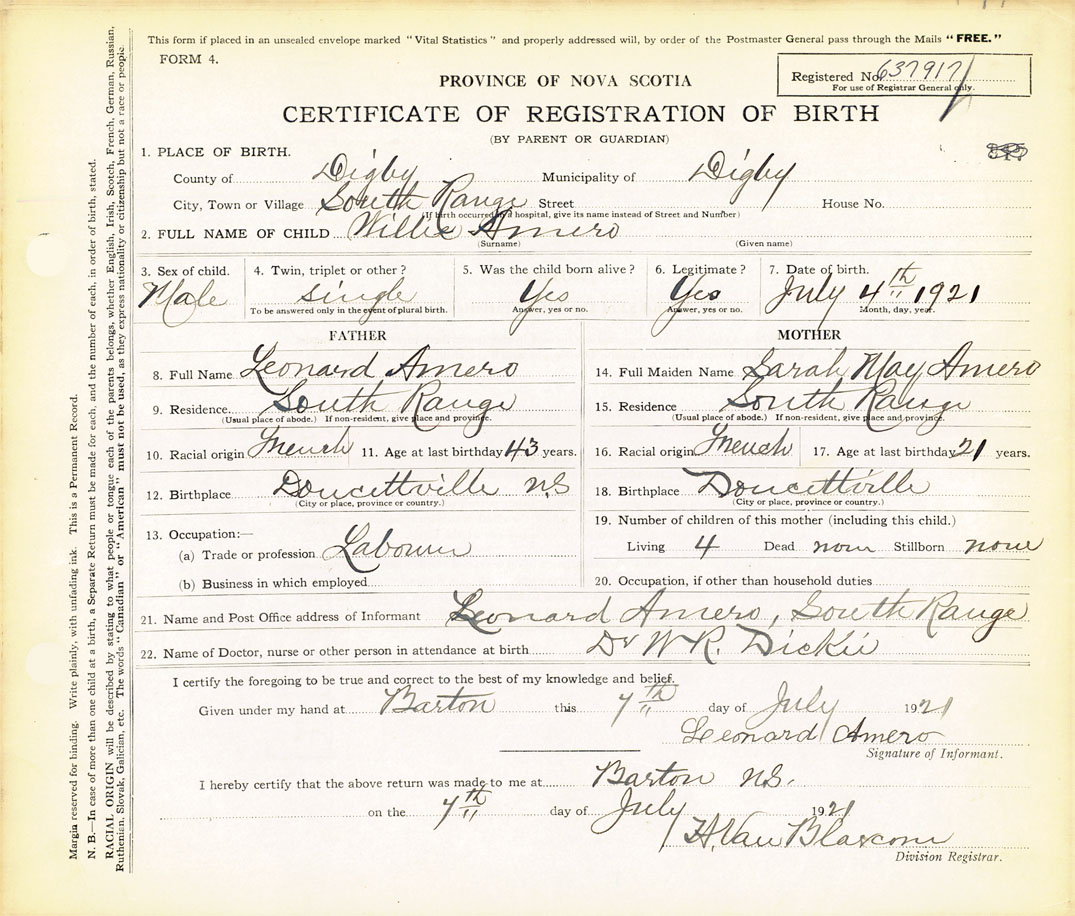 This form if placed in an unsealed envelope marked "Vital Statistics" and properly addressed will, by order of the Postmaster General pass through the Mails "FREE."
FORM 4.
Registered No. 637917
For use of Registrar General only.
PROVINCE OF NOVA SCOTIA
CERTIFICATE OF REGISTRATION OF BIRTH
(BY PARENT OR GUARDIAN)
1. PLACE OF BIRTH.
County of Digby Municipality of Digby
City, Town or Village South Range Street House No.
(If birth occurred in a hospital, give its name instead of Street and Number)
2. FULL NAME OF CHILD Willie Amero
(Surname) (Given name)
3. Sex of child. Male
4. Twin, triplet or other? single
To be answered only in the event of plural birth.
5. Was the child born alive? Yes
Answer, yes or no.
6. Legitimate? Yes
Answer, yes or no.
7. Date of birth. July 4th 1921
Month, day, year.
FATHER
8. Full Name Leonard Amero
9. Residence South Range
(Usual place of abode.) If non-resident, give place and province.
10. Racial origin French 11. Age at last birthday 43 years.
12. Birthplace Doucettville N.S
(City or place, province or country.)
13. Occupation:—
(a) Trade or profession Labourer
(b) Business in which employed
MOTHER
14. Full Maiden Name Sarah May Amero
15. Residence South Range
(Usual place of abode.) If non-resident, give place and province.
16. Racial origin French 17. Age at last birthday 21 years.
18. Birthplace Doucettville
(City or place, province or country.)
19. Number of children of this mother (including this child.)
Living 4 Dead none Stillborn none
20. Occupation, if other than household duties
21. Name and Post Office address of Informant Leonard Amero, South Range
22. Name of Doctor, nurse or other person in attendance at birth Dr W R. Dickie
I certify the foregoing to be true and correct to the best of my knowledge and belief.
Given under my hand at Barton this 7th day of July 1921
Leonard Amero
Signature of Informant.
I hereby certify that the above return was made to me at Barton N.S.
on the 7th day of July 1921
H. Van Blarcom
Division Registrar.
Margin reserved for binding. Write plainly, with unfading ink. This is a Permanent Record.
N. B.—In case of more than one child at a birth, a Separate Return must be made for each, and the number of each, in order of birth, stated.
RACIAL ORIGIN will be described by stating to what people or tongue each of the parents belongs, whether English, Irish, Scotch, French, German, Russian,
Ruthenian, Slovak, Galician, etc. The words "Canadian" or "American" must not be used, as they express nationality or citizenship but not a race or people.